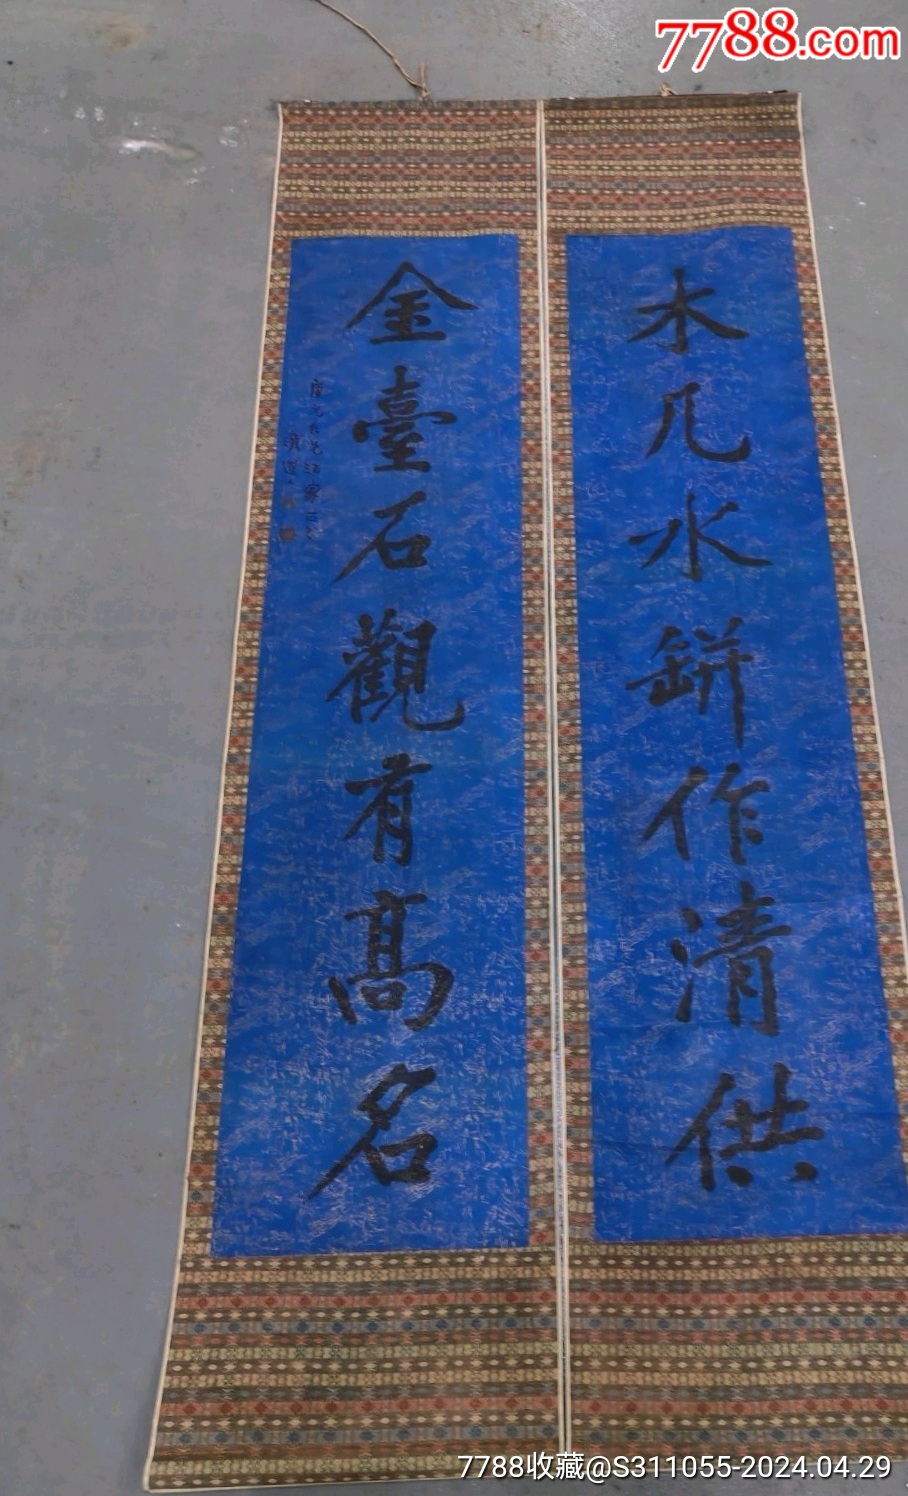 7788.com
木几水缾作清供
金臺石觀有高名
7788收藏@S311055-2024.04.29